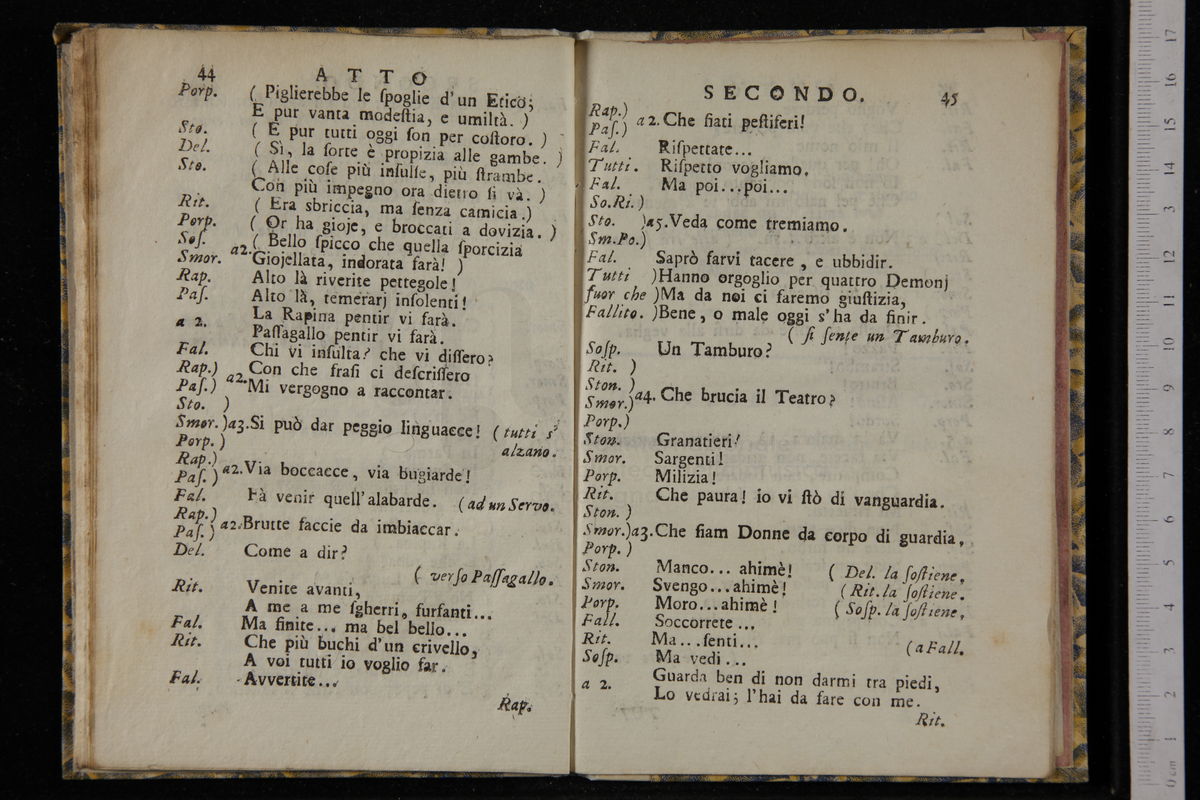 44
ATTO
Porp. ( Piglierebbe le ſpoglie d'un Etico;
E pur vanta modeſtia, e umiltà. )
Sto. ( E pur tutti oggi ſon per coſtoro. )
Del. ( Sì, la ſorte è propizia alle gambe. )
Sto. ( Alle coſe più inſulſe, più ſtrambe.
Con più impegno ora dietro ſi và. )
Rit. ( Era sbriccia, ma ſenza camicia.)
Porp. ( Or ha gioje, e broccati a dovizia. )
Soſ. a2. ( Bello ſpicco che quella ſporcizia
Smor. Giojellata, indorata farà! )
Rap. Alto là riverite pettegole!
Paſ. Alto là, temerarj inſolenti!
a 2. La Rapina pentir vi farà.
Paſſagallo pentir vi farà.
Fal. Chi vi inſulta? che vi diſſero?
Rap.) a2. Con che fraſi ci deſcriſſero
Paſ.) Mi vergogno a raccontar.
Sto. )
Smor. )a3. Si può dar peggio linguacce! ( tutti s'
Porp. ) alzano.
Rap.)
Paſ. ) a2. Via boccacce, via bugiarde!
Fal. Fà venir quell'alabarde. (ad un Servo.
Rap.)
Paſ. ) a2. Brutte faccie da imbiaccar.
Del. Come a dir?
( verſo Paſſagallo.
Rit. Venite avanti,
A me a me ſgherri, furfanti...
Fal. Ma finite... ma bel bello...
Rit. Che più buchi d'un crivello,
A voi tutti io voglio far.
Fal. Avvertite...
Rap.
SECONDO. 45
Rap.)
Paſ.) a 2. Che fiati peſtiferi!
Fal. Riſpettate...
Tutti. Riſpetto vogliamo.
Fal. Ma poi...poi...
So.Ri.)
Sto. )a5. Veda come tremiamo.
Sm.Po.)
Fal. Saprò farvi tacere, e ubbidir.
Tutti )Hanno orgoglio per quattro Demonj
fuor che )Ma da noi ci faremo giuſtizia,
Fallito. )Bene, o male oggi s'ha da finir.
( ſi ſente un Tamburo.
Soſp. Un Tamburo?
Rit. )
Ston. )
Smor.)a4. Che brucia il Teatro?
Porp.)
Ston. Granatieri!
Smor. Sargenti!
Porp. Milizia!
Rit. Che paura! io vi ſtò di vanguardia.
Ston. )
Smor.)a3. Che ſiam Donne da corpo di guardia,
Porp. )
Ston. Manco... ahimè! ( Del. la ſoſtiene,
Smor. Svengo...ahimè! ( Rit. la ſoſtiene.
Porp. Moro...ahimè! ( Soſp. la ſoſtiene,
Fall. Soccorrete...
Rit. Ma...ſenti... (a Fall.
Soſp. Ma vedi...
a 2. Guarda ben di non darmi tra piedi,
Lo vedrai; l'hai da fare con me.
Rit.
0 cm 1 2 3 4 5 6 7 8 9 10 11 12 13 14 15 16 17